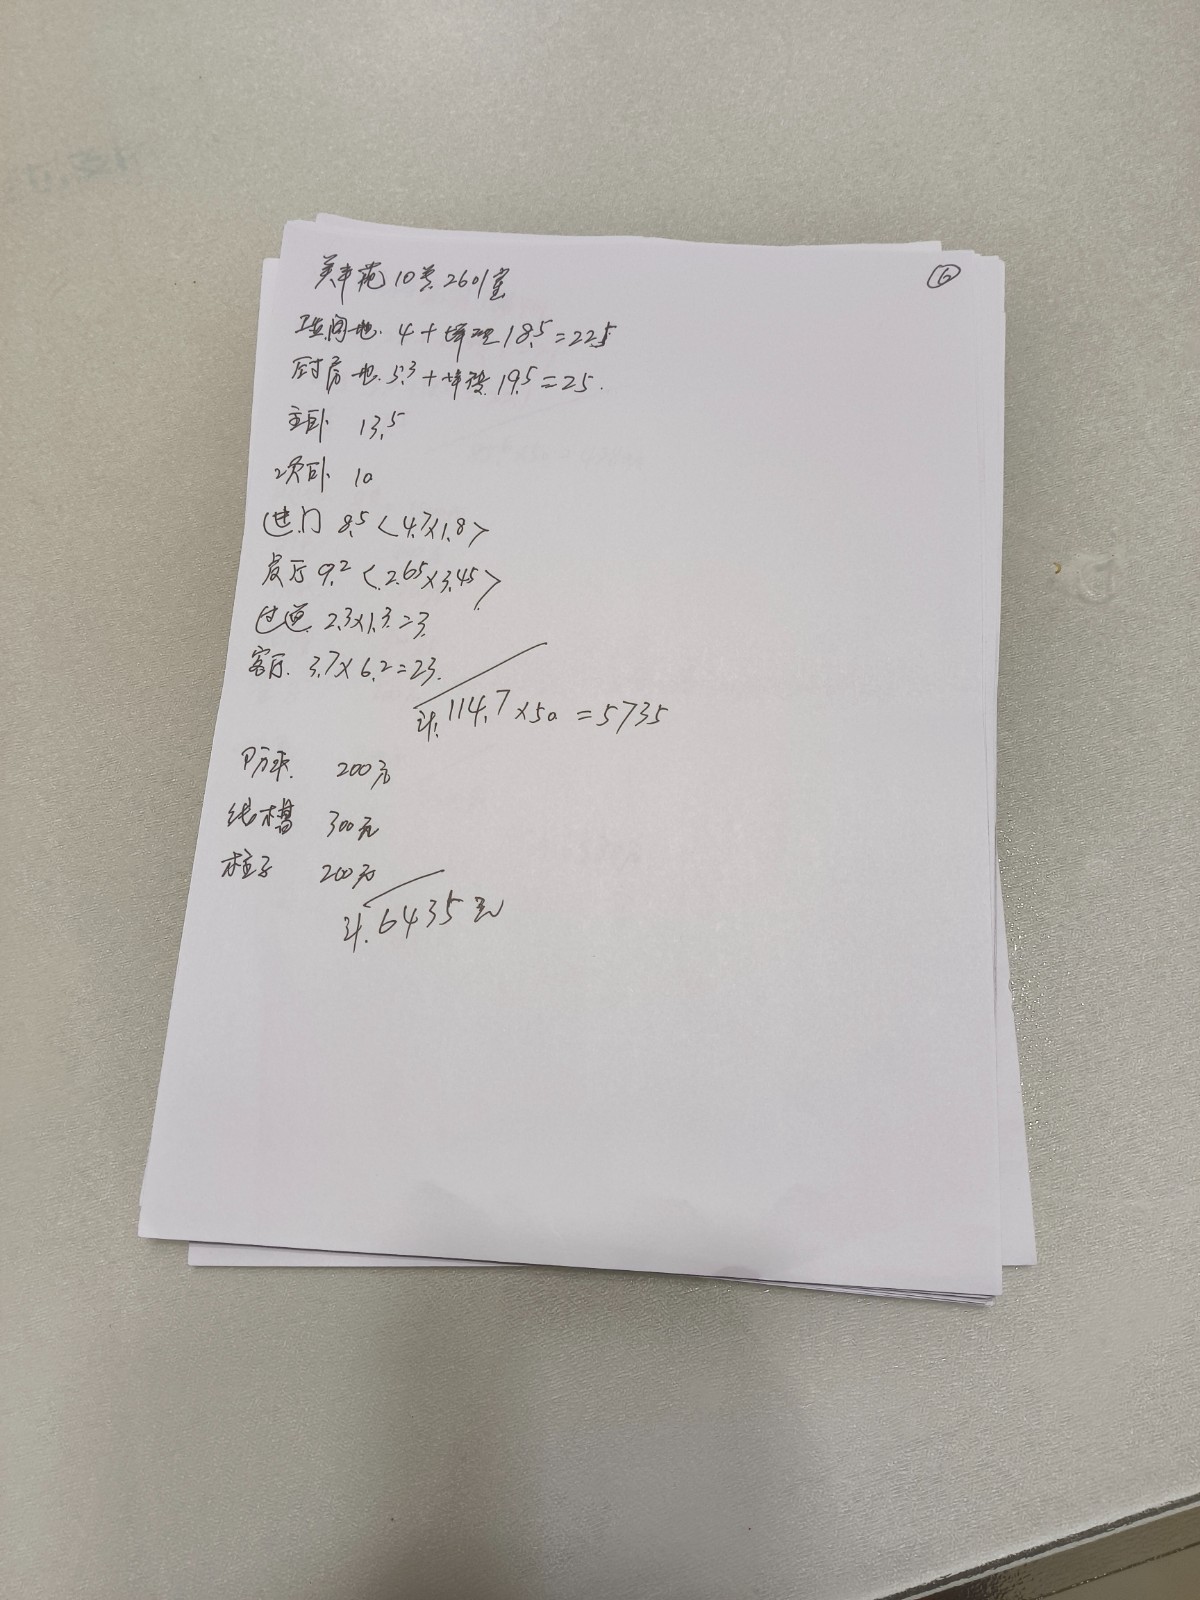 ⑥
美丰苑10号2601室
卫生间地. 4+墙理18.5=22.5
厨房地. 5.3+墙理19.5=25.
主卧 13.5
次卧 10
进门 8.5<4.7x1.8>
餐厅 9.2<2.65x3.45>
过道 2.3x1.3=3.
客厅. 3.7x6.2=23.
计.114.7x50=5735
防水 200元
线槽 300元
柱子 200元
计.6435元